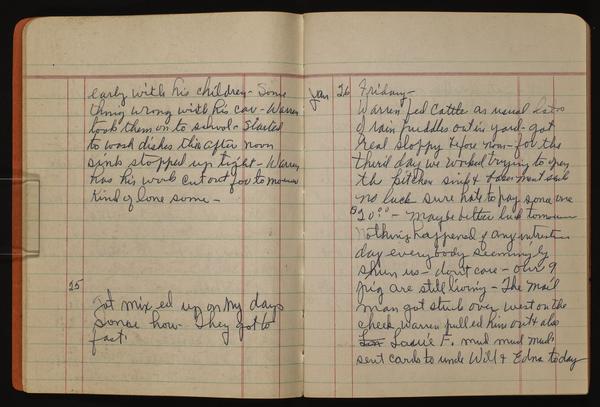 early with his children - Some
thing wrong with his car - Warren
took them on to school - Started
to wash dishes this after noon
sink stopped up tight - Warren
has his work cut out for to morrow
Kind of lone some -
25
Got mix ed up on My days
some how They go to
fast
Jan 26 Friday -
Warren fed Cattle as usual lots
of rain puddles out in yard - got
real sloppy before noon - for the
third day we worked trying to open
the kitchen sink & basement sink
no luck sure hate to pay some one
$20.00 - Maybe better luck tomorrow
Nothing happened of any intrest
day every body seemingly
shun us - dont care - our 9
pig are still living - The Mail
Man got stuck over west on the
creek Warren pulled him out & also
Lassie F. mud mud mud
sent cards to uncle Will & Edna today